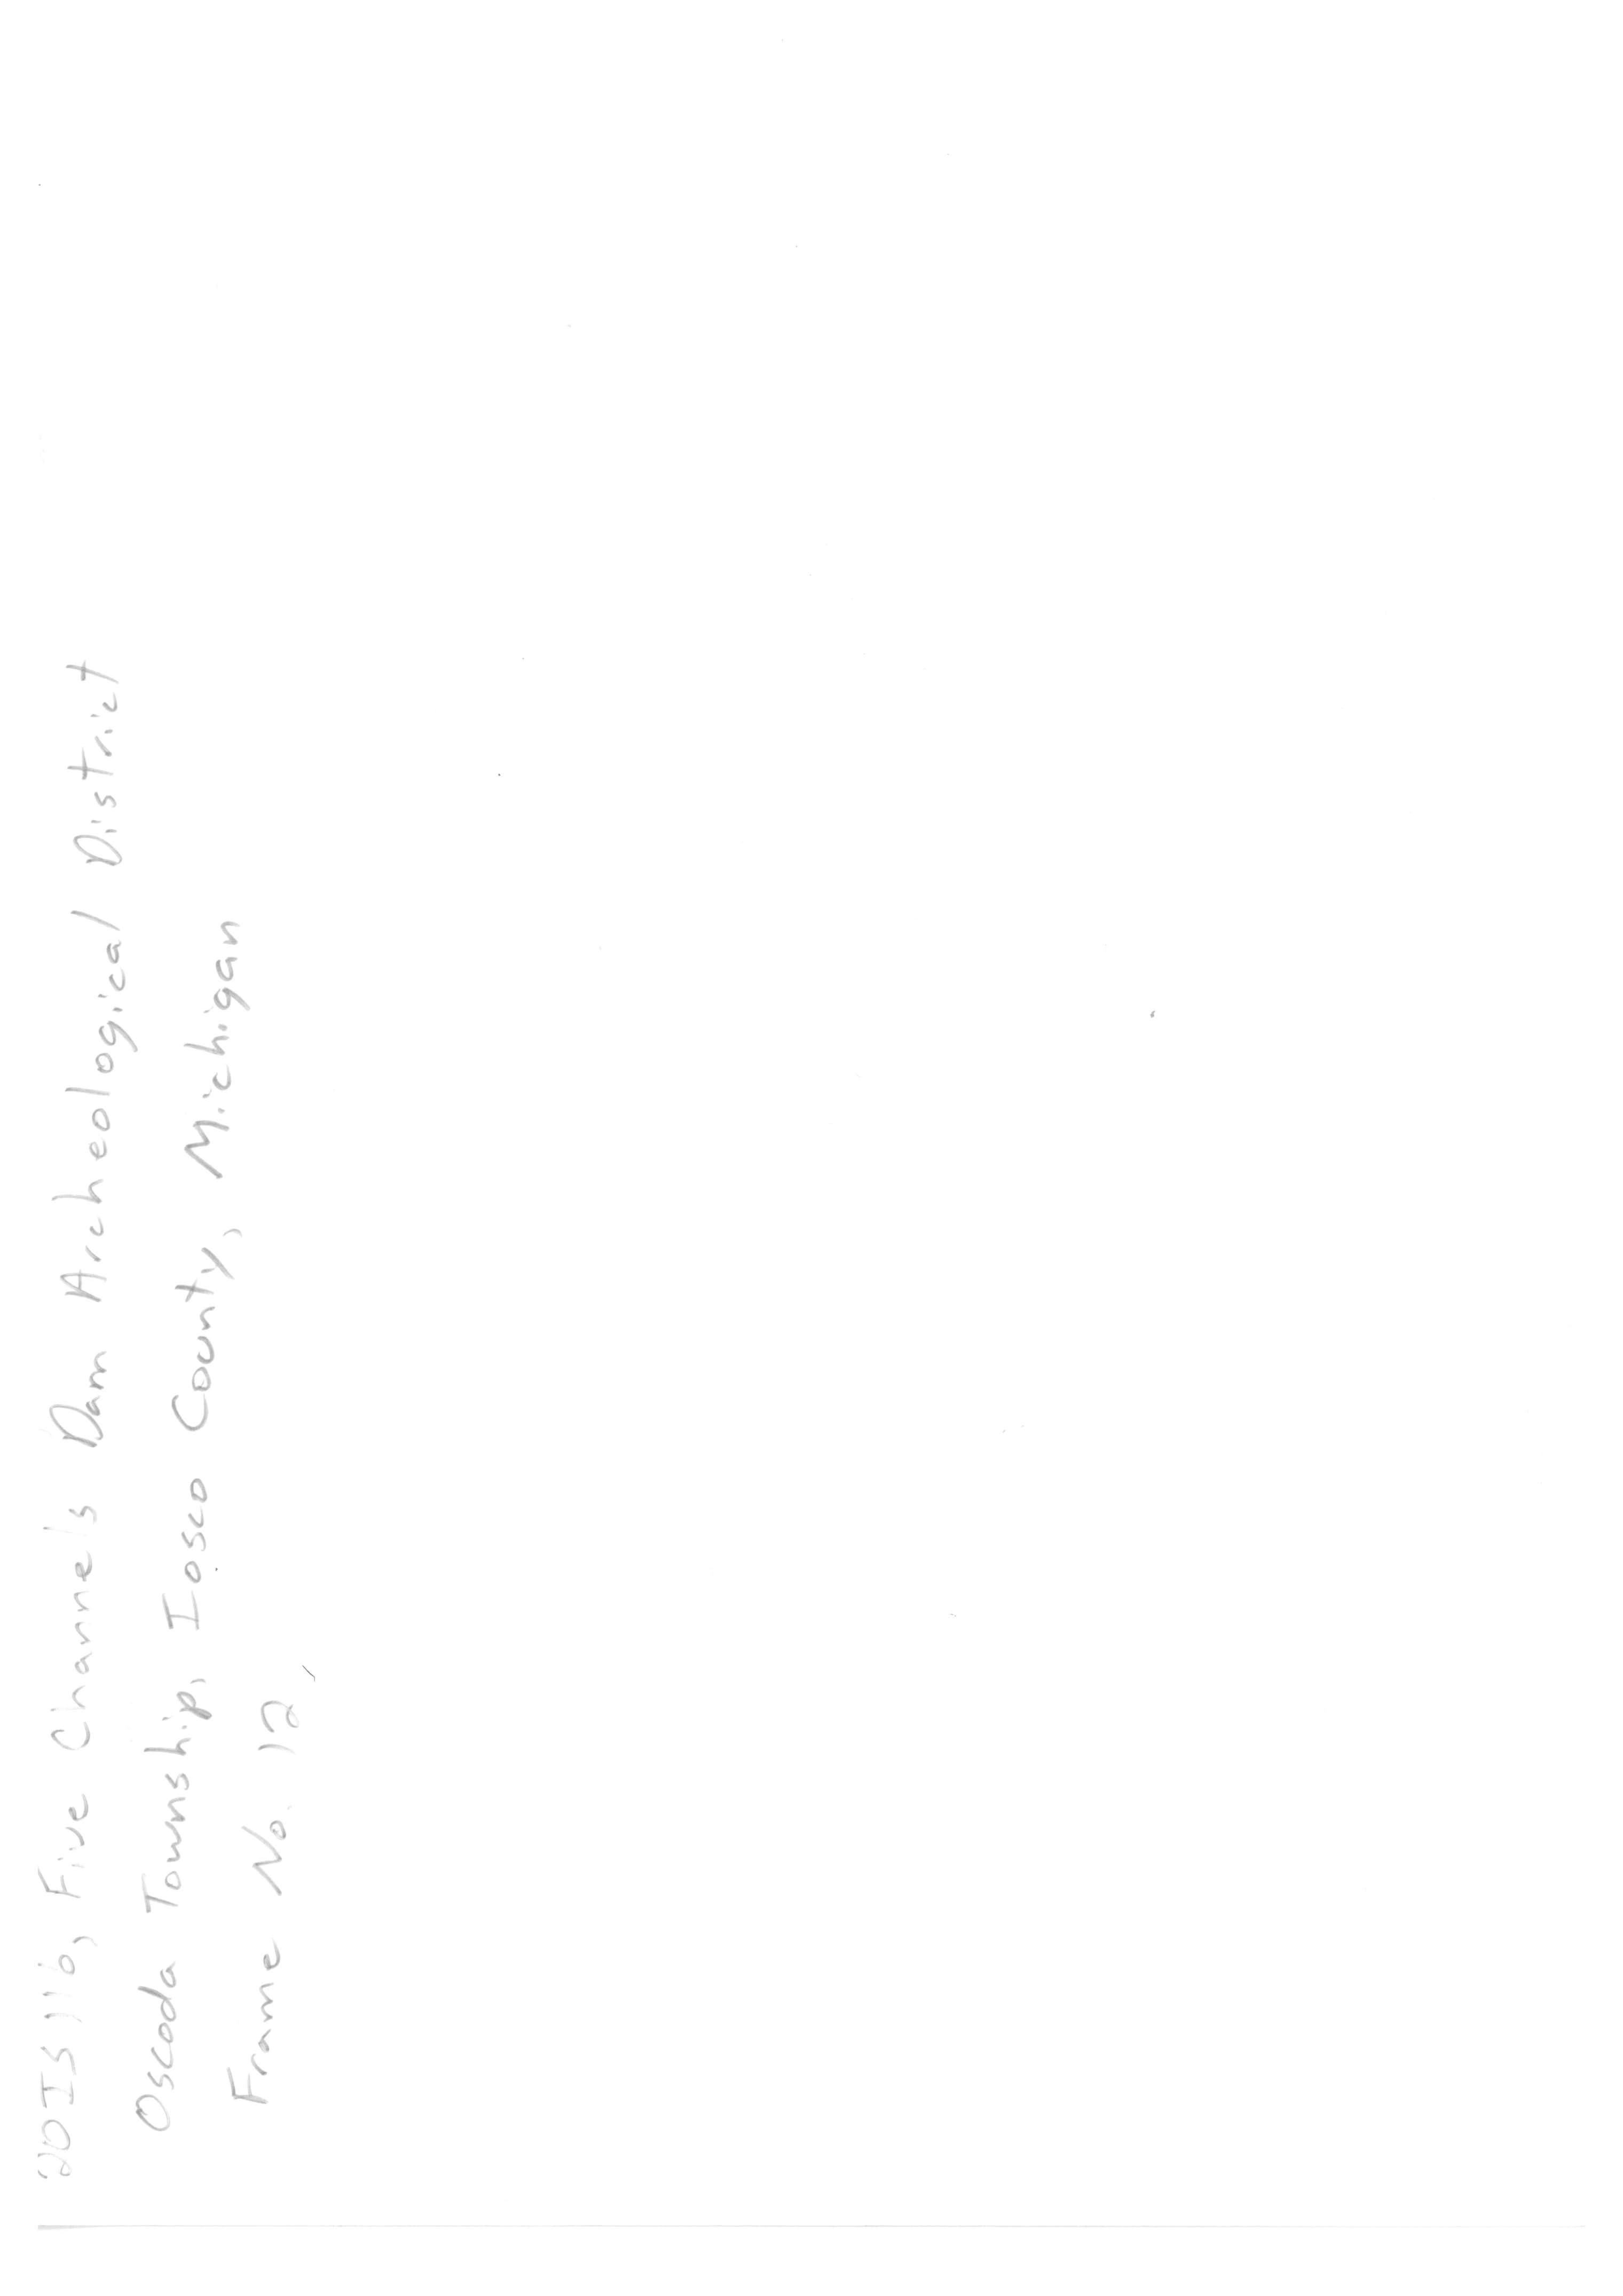 20IS116, Five Channels Dam Archeological District
Oscoda Township, Iosco County, Michigan
Frame No. 12